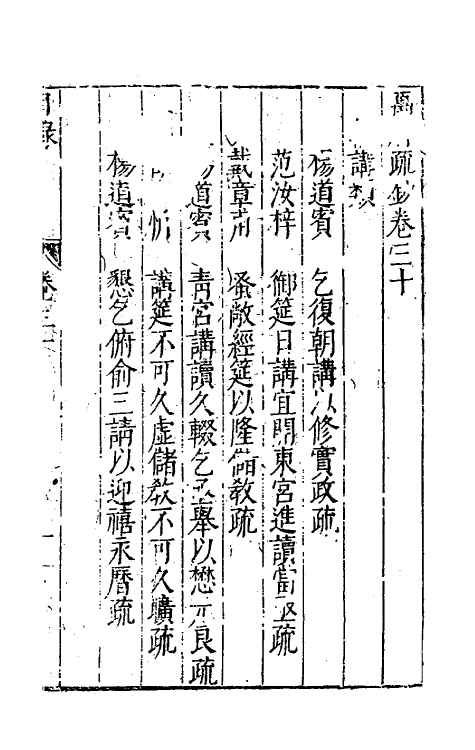 萬 疏鈔卷三十
講類
楊道賓 乞復朝講以修實政疏
范汝梓 御筵日講宜開東宮進讀當亟疏
戴章甫 蚤敞經筵以隆儲教疏
楊道賓 青宮講讀久輟乞亟舉以懋元良疏
講筵不可久虛儲教不可久曠疏
楊道賓 懇乞俯俞三請以迎禧永曆疏
目錄 卷三十 一